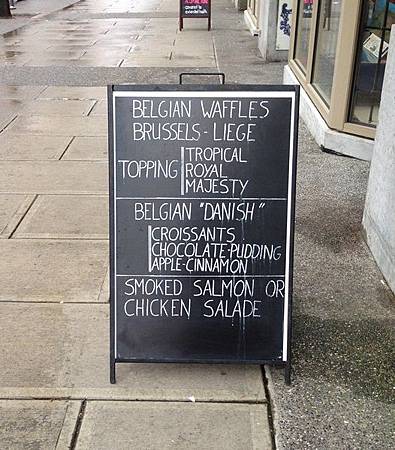 BELGIAN WAFFLES
BRUSSELS - LIEGE
TOPPING
TROPICAL
ROYAL
MAJESTY
BELGIAN "DANISH"
CROISSANTS
CHOCOLATE-PUDDING
APPLE-CINNAMON
SMOKED SALMON OR
CHICKEN SALADE